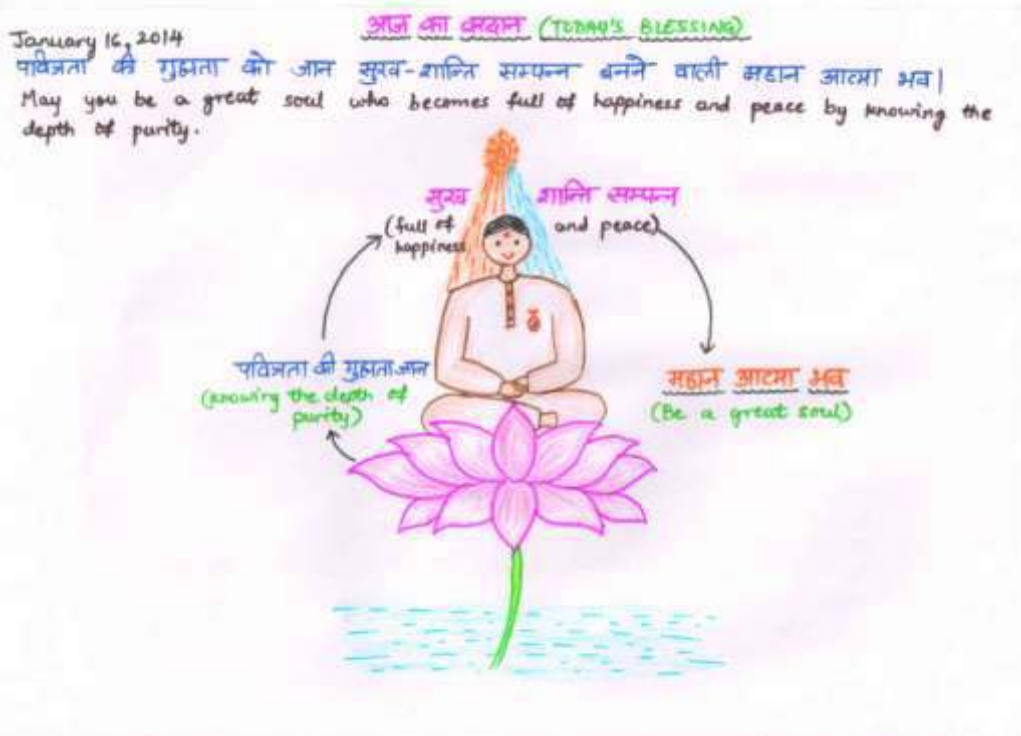 आज का वरदान (TODAY'S BLESSING)
January 16, 2014
पवित्रता की गुह्यता को जान सुख-शान्ति सम्पन्न बनने वाली महान आत्मा भव|
May you be a great soul who becomes full of happiness and peace by knowing the
depth of purity.
सुख शान्ति सम्पन्न
(full of happiness and peace)
पवित्रता की गुह्यता जान
(knowing the depth of
purity)
महान आत्मा भव
(Be a great soul)